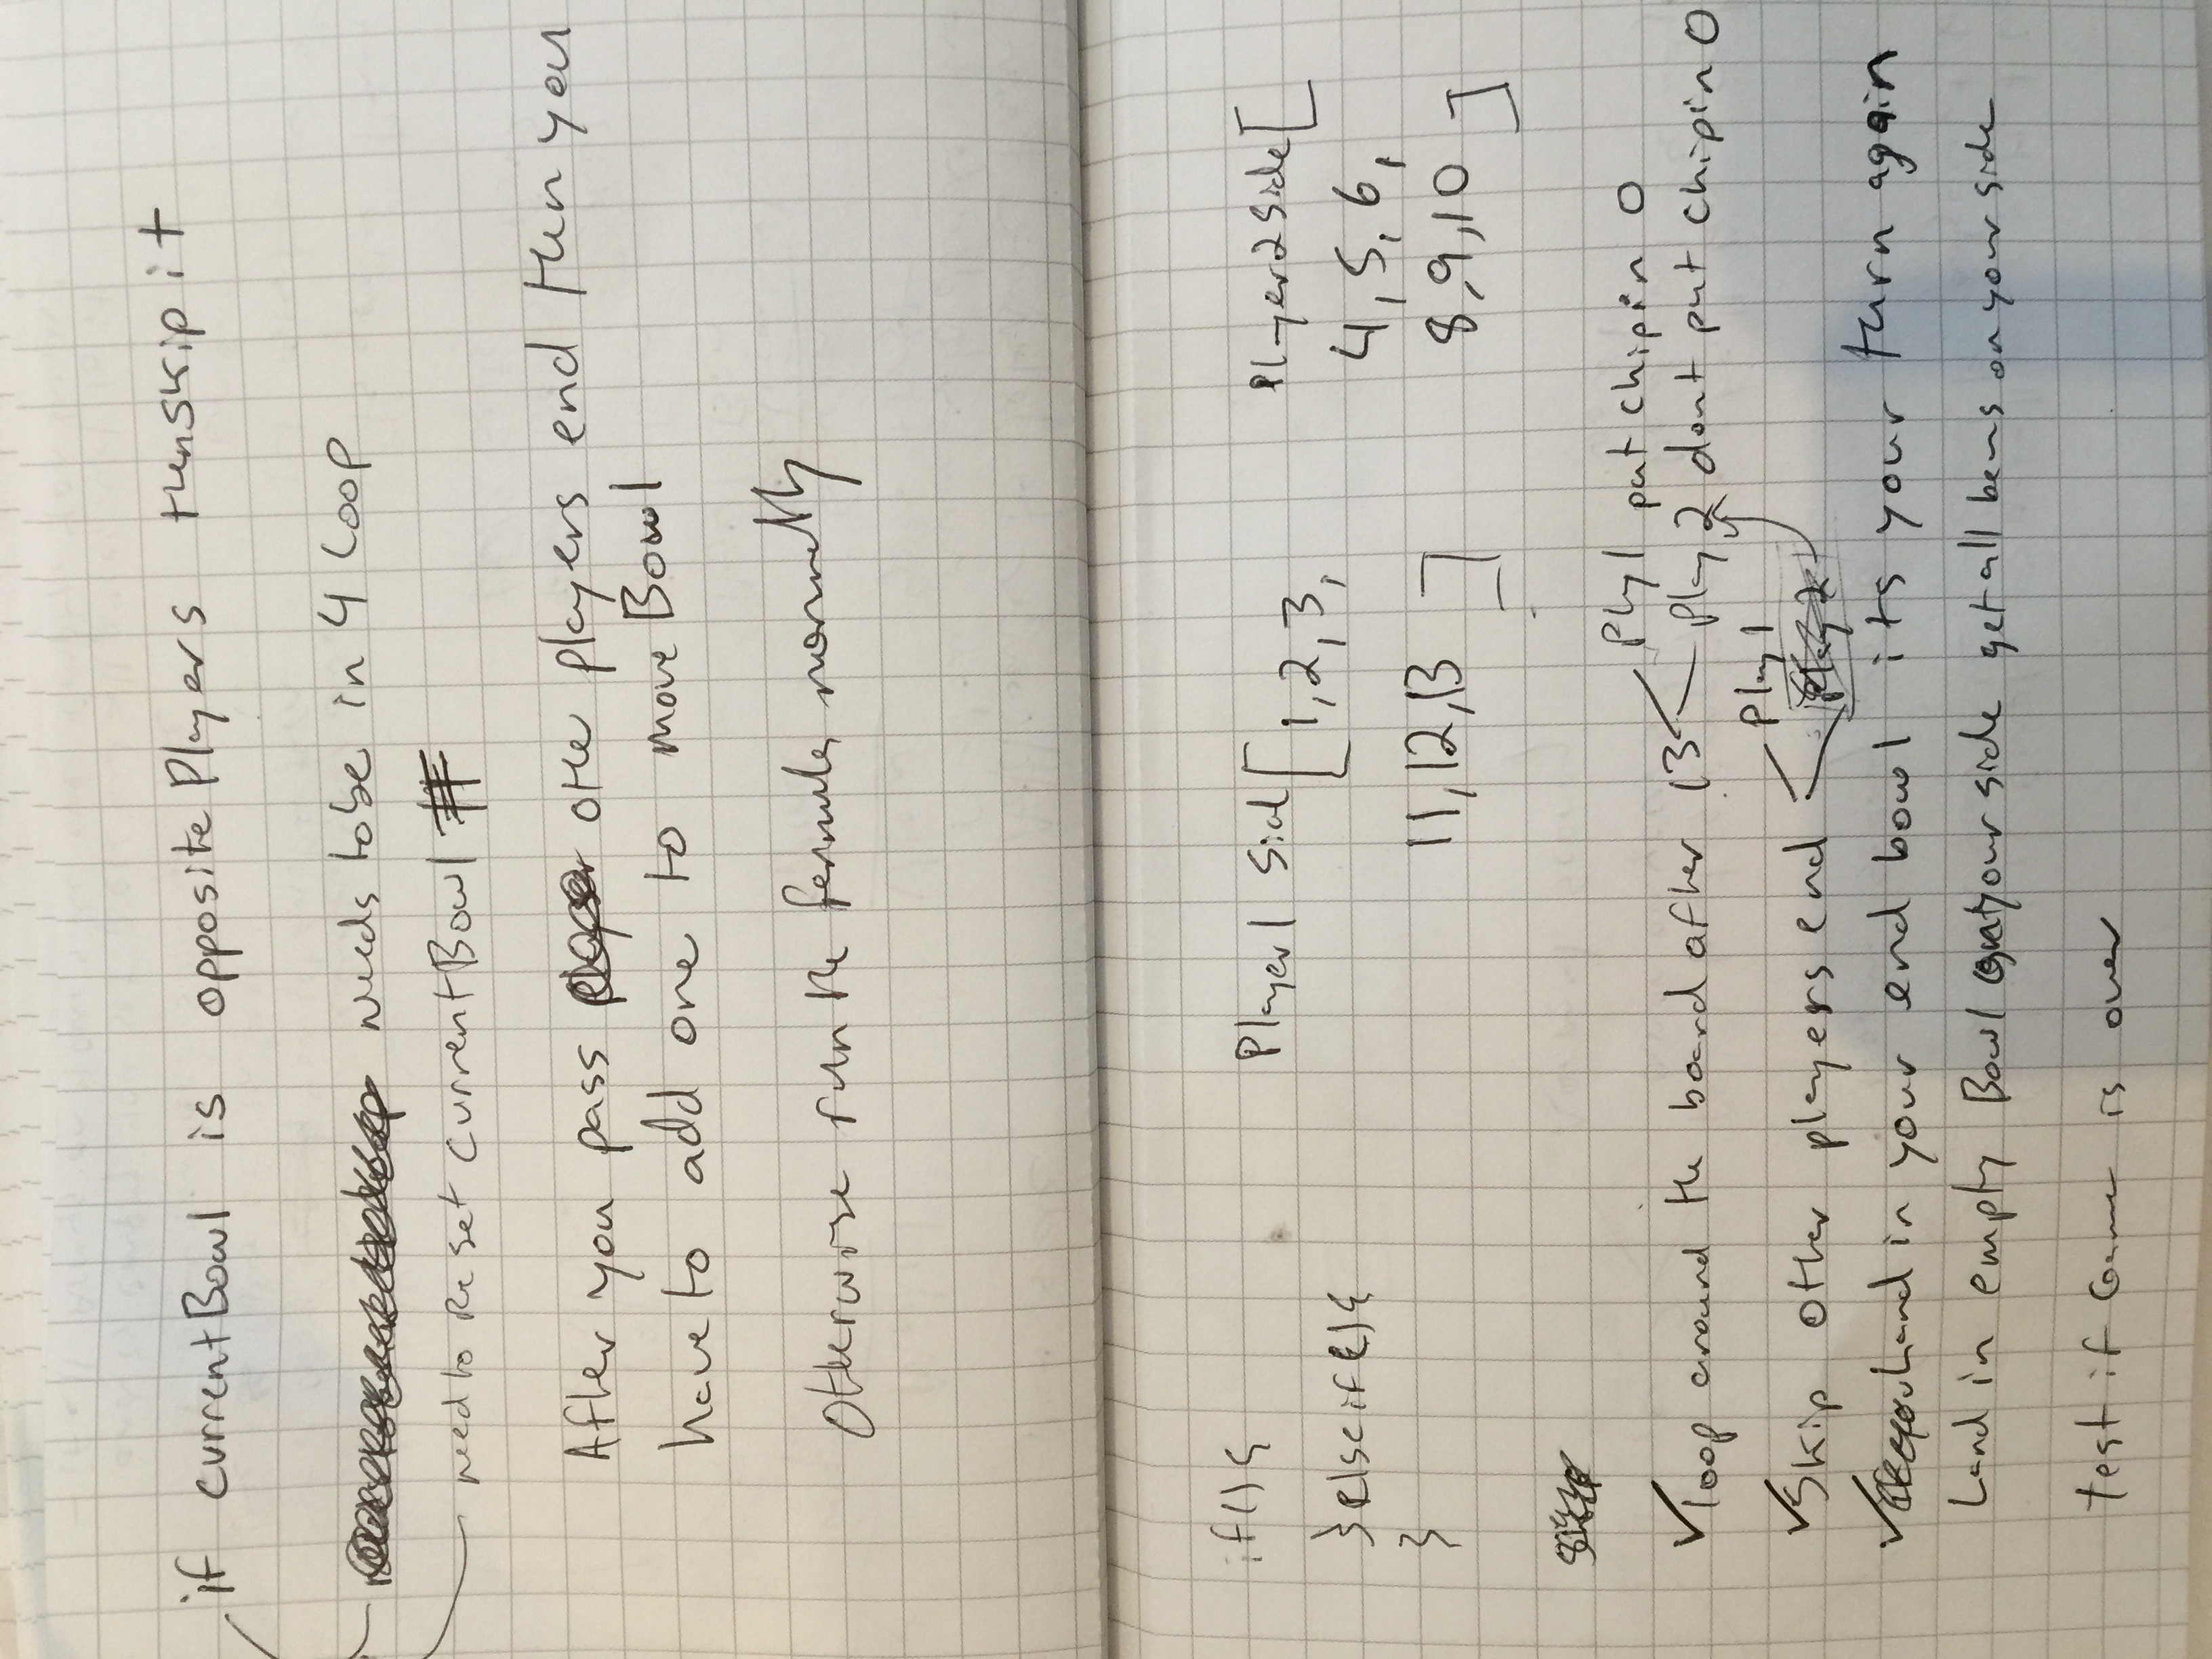 if currentBowl is opposite Players then skip it
needs to be in 4 loop
need to Reset currentBowl #
After you pass other players end then you
have to add one to move Bowl
Otherwise run the formula normally
if(){
}elseif(){
}
Player1 Side[1,2,3,
11,12,13]
Player2Side[
4,5,6,
8,9,10]
✓loop around the board after 13
Play1 put chip in 0
Play2 dont put chip in 0
✓Skip other players end
Play1
Play2
✓Land in your end bowl its your turn again
Land in empty Bowl on your side get all beans on your side
test if Game is over